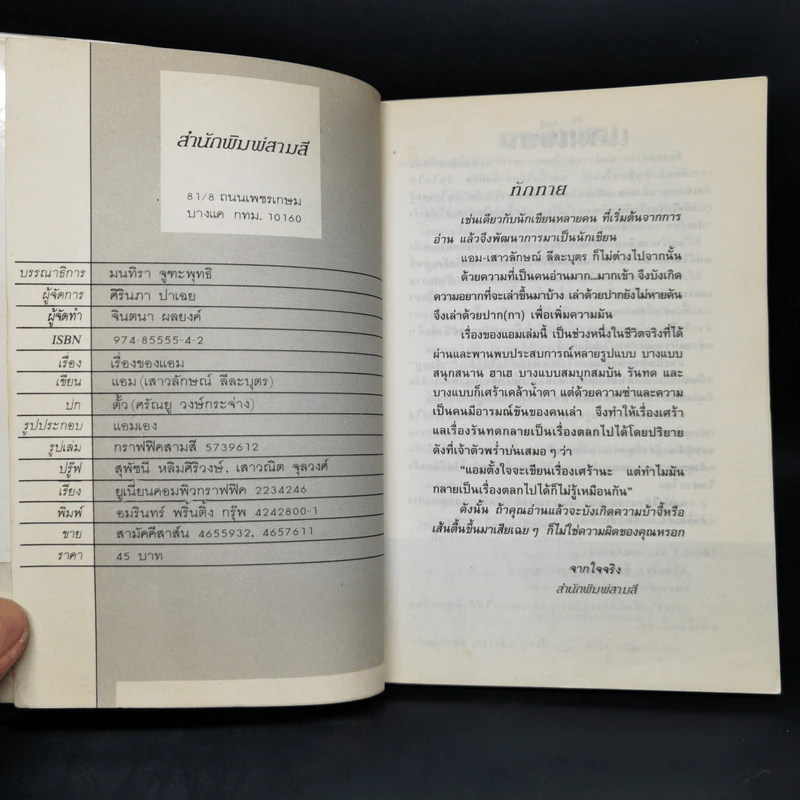 สำนักพิมพ์สามสี
81/8 ถนนเพชรเกษม
บางแค กทม. 10160
บรรณาธิการ มนทิรา จูฑะพุทธิ
ผู้จัดการ ศิรินภา ปาเฉย
ผู้จัดทำ จินตนา ผลยงค์
ISBN 974-85555-4-2
เรื่อง เรื่องของแอม
เขียน แอม (เสาวลักษณ์ ลีละบุตร)
ปก ตั้ว (ศรัณยู วงษ์กระจ่าง)
รูปประกอบ แอมเอง
รูปเล่ม กราฟฟิคสามสี 5739612
ปรู๊ฟ สุพัชนี หลิมศิริวงษ์, เสาวณิต จุลวงศ์
เรียง ยูเนี่ยนคอมพิวกราฟฟิค 2234246
พิมพ์ อมรินทร์ พริ้นติ้ง กรุ๊พ 4242800-1
ขาย สามัคคีสาส์น 4655932, 4657611
ราคา 45 บาท
ทักทาย
เช่นเดียวกับนักเขียนหลายคน ที่เริ่มต้นจากการ
อ่าน แล้วจึงพัฒนาการมาเป็นนักเขียน
แอม-เสาวลักษณ์ ลีละบุตร ก็ไม่ต่างไปจากนั้น
ด้วยความที่เป็นคนอ่านมาก...มากเข้า จึงบังเกิด
ความอยากที่จะเล่าขึ้นมาบ้าง เล่าด้วยปากยังไม่หายคัน
จึงเล่าด้วยปาก(กา) เพื่อเพิ่มความมัน
เรื่องของแอมเล่มนี้ เป็นช่วงหนึ่งในชีวิตจริงที่ได้
ผ่านและพานพบประสบการณ์หลายรูปแบบ บางแบบ
สนุกสนาน ฮาเฮ บางแบบสมบุกสมบัน รันทด และ
บางแบบก็เศร้าเคล้าน้ำตา แต่ด้วยความซ่าและความ
เป็นคนมีอารมณ์ขันของคนเล่า จึงทำให้เรื่องเศร้า
แลเรื่องรันทดกลายเป็นเรื่องตลกไปได้โดยปริยาย
ดังที่เจ้าตัวพร่ำบ่นเสมอ ๆ ว่า
"แอมตั้งใจจะเขียนเรื่องเศร้านะ แต่ทำไมมัน
กลายเป็นเรื่องตลกไปได้ก็ไม่รู้เหมือนกัน"
ดังนั้น ถ้าคุณอ่านแล้วจะบังเกิดความบ้าจี้หรือ
เส้นตื้นขึ้นมาเสียเฉย ๆ ก็ไม่ใช่ความผิดของคุณหรอก
จากใจจริง
สำนักพิมพ์สามสี